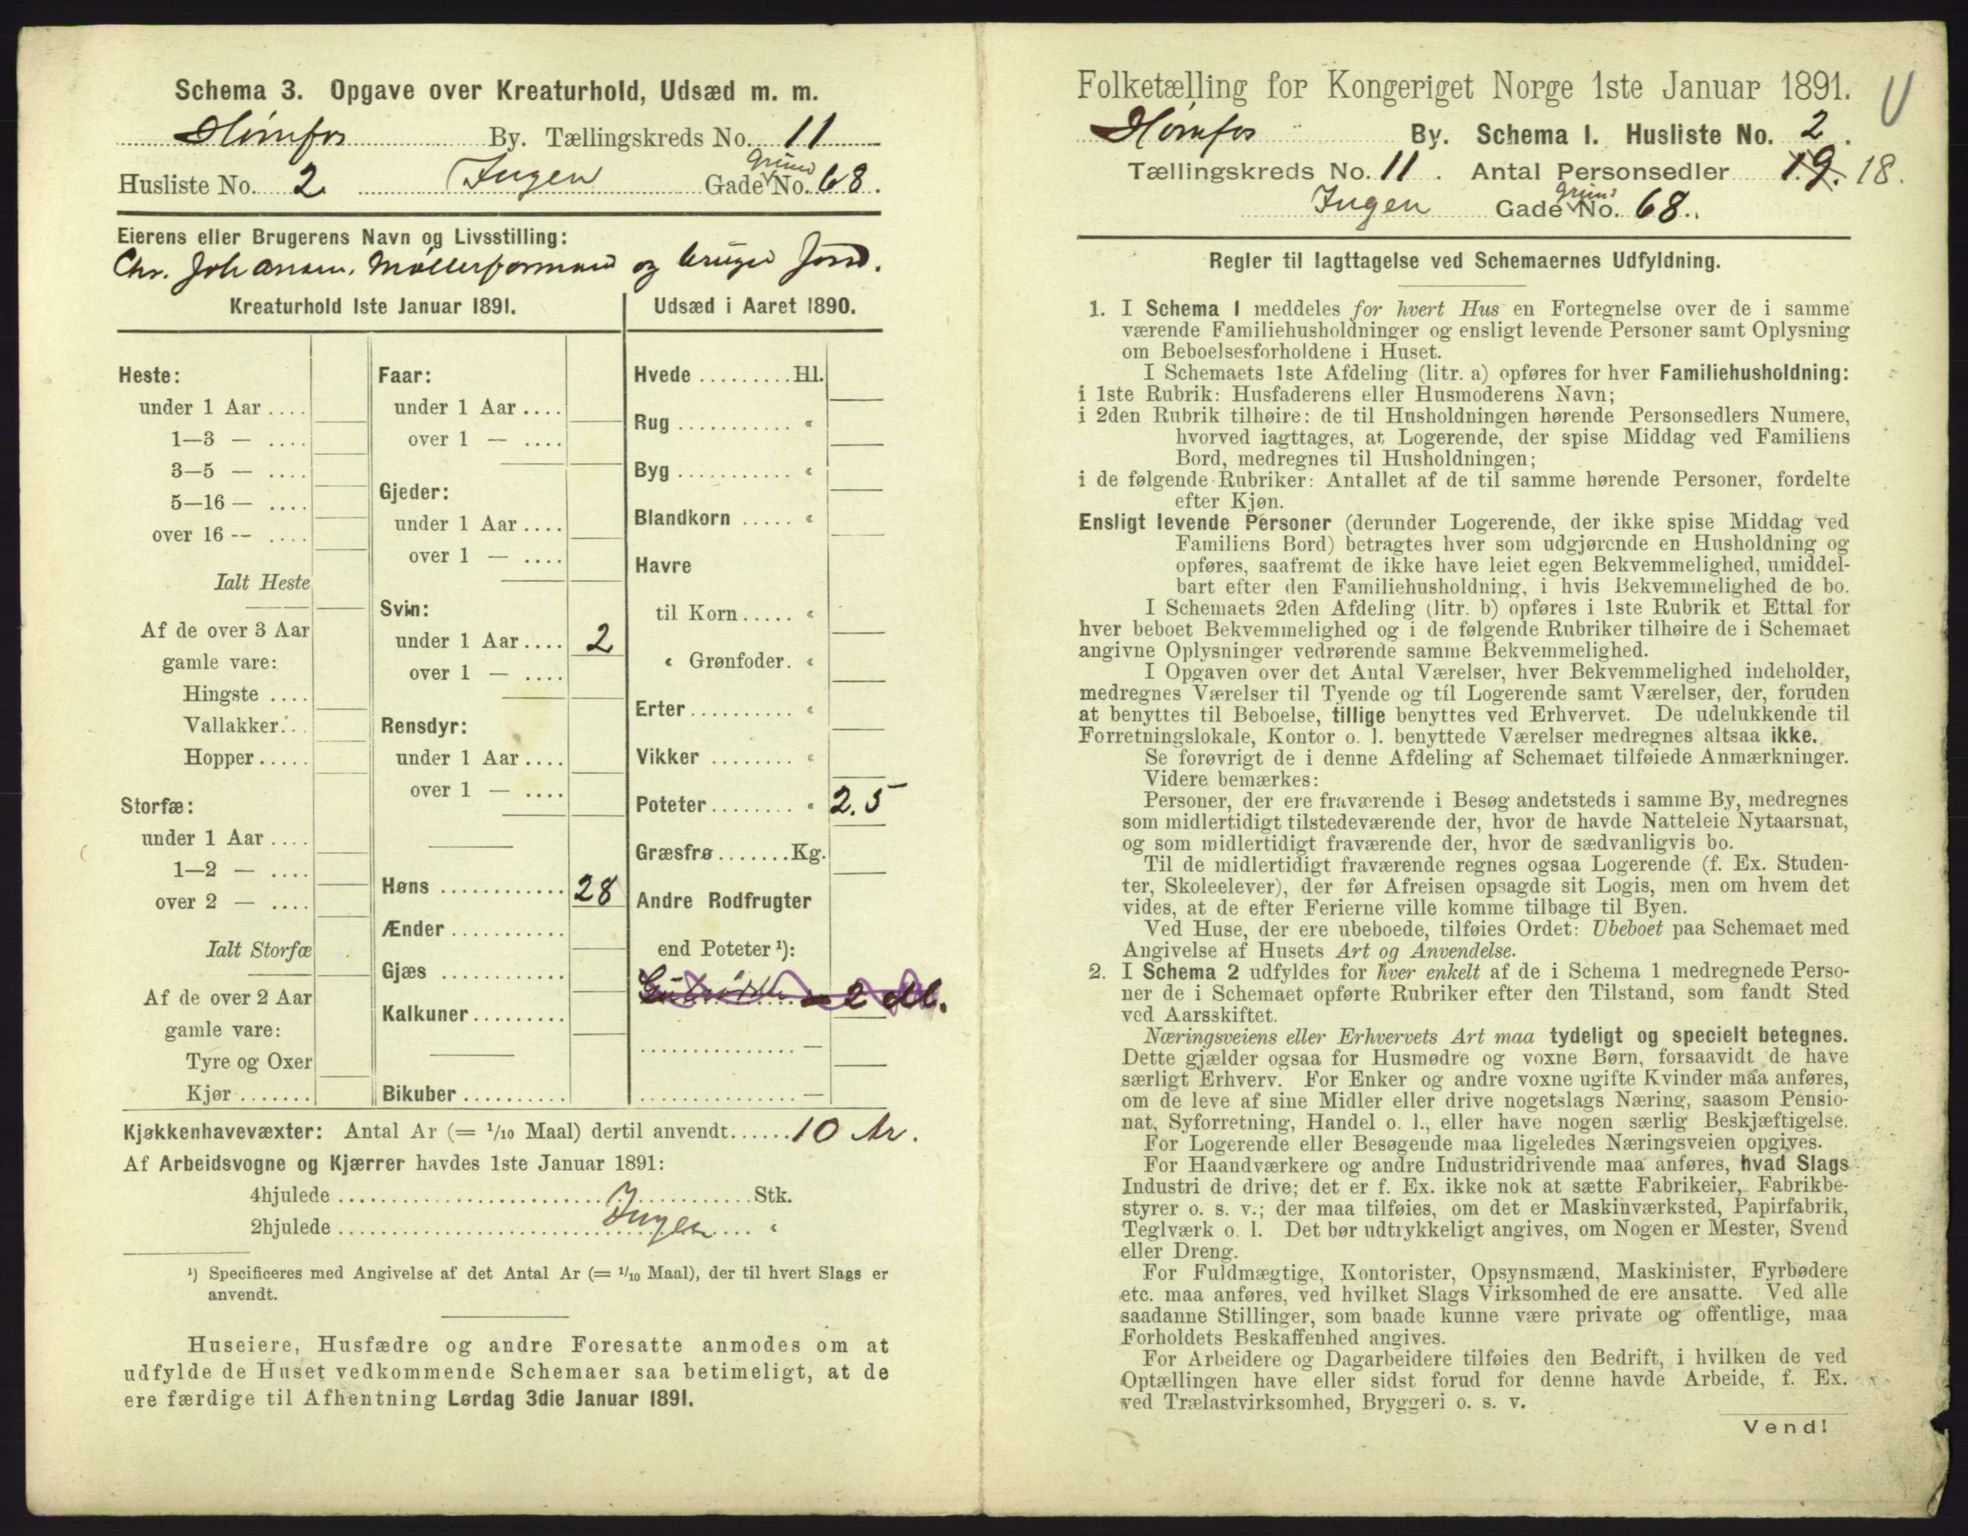 Schema 3. Opgave over Kreaturhold, Udsæd m. m.
Hønefos By. Tællingskreds No. 11
Husliste No. 2 Ingen Gade Grund No. 68.
Eierens eller Brugerens Navn og Livsstilling:
Chr. Johansen, Møllerformand og bruger Jord.
Kreaturhold 1ste Januar 1891.
Heste:
under 1 Aar ....
1—3 — ....
3—5 — ....
5—16 — ....
over 16 — ....
Ialt Heste
Af de over 3 Aar
gamle vare:
Hingste ....
Vallakker...
Hopper.....
Storfæ:
under 1 Aar ....
1—2 — ....
over 2 — ....
Ialt Storfæ
Af de over 2 Aar
gamle vare:
Tyre og Oxer
Kjør.......
Faar:
under 1 Aar ....
over 1 — ....
Gjeder:
under 1 Aar ....
over 1 — ....
Svin:
under 1 Aar .... 2
over 1 — ....
Rensdyr:
under 1 Aar ....
over 1 — ....
Høns ............ 28
Ænder ...........
Gjæs ............
Kalkuner.........
Bikuber ..........
Udsæd i Aaret 1890.
Hvede .........Hl.
Rug ........... «
Byg ........... «
Blandkorn ..... «
Havre
til Korn..... «
« Grønfoder. «
Erter.......... «
Vikker ........ «
Poteter........ « 2.5
Græsfrø.......Kg.
Andre Rodfrugter
end Poteter ¹):
— 2 Hl.
.............. —
.............. —
Kjøkkenhavevæxter: Antal Ar (= 1/10 Maal) dertil anvendt...... 10 Ar.
Af Arbeidsvogne og Kjærrer havdes 1ste Januar 1891:
4hjulede ........................ Stk.
2hjulede ........ Ingen ........ «
¹) Specificeres med Angivelse af det Antal Ar (= 1/10 Maal), der til hvert Slags er
anvendt.
Huseiere, Husfædre og andre Foresatte anmodes om at
udfylde de Huset vedkommende Schemaer saa betimeligt, at de
ere færdige til Afhentning Lørdag 3die Januar 1891.
Folketælling for Kongeriget Norge 1ste Januar 1891.
Hønefos By. Schema 1. Husliste No. 2.
Tællingskreds No. 11. Antal Personsedler 19. 18.
Ingen Gade Grund No. 68.
Regler til Iagttagelse ved Schemaernes Udfyldning.
1. I Schema 1 meddeles for hvert Hus en Fortegnelse over de i samme
værende Familiehusholdninger og ensligt levende Personer samt Oplysning
om Beboelsesforholdene i Huset.
I Schemaets 1ste Afdeling (litr. a) opføres for hver Familiehusholdning:
i 1ste Rubrik: Husfaderens eller Husmoderens Navn;
i 2den Rubrik tilhøire: de til Husholdningen hørende Personsedlers Numere,
hvorved iagttages, at Logerende, der spise Middag ved Familiens
Bord, medregnes til Husholdningen;
i de følgende Rubriker: Antallet af de til samme hørende Personer, fordelte
efter Kjøn.
Ensligt levende Personer (derunder Logerende, der ikke spise Middag ved
Familiens Bord) betragtes hver som udgjørende en Husholdning og
opføres, saafremt de ikke have leiet egen Bekvemmelighed, umiddel-
bart efter den Familiehusholdning, i hvis Bekvemmelighed de bo.
I Schemaets 2den Afdeling (litr. b) opføres i 1ste Rubrik et Ettal for
hver beboet Bekvemmelighed og i de følgende Rubriker tilhøire de i Schemaet
angivne Oplysninger vedrørende samme Bekvemmelighed.
I Opgaven over det Antal Værelser, hver Bekvemmelighed indeholder,
medregnes Værelser til Tyende og til Logerende samt Værelser, der, foruden
at benyttes til Beboelse, tillige benyttes ved Erhvervet. De udelukkende til
Forretningslokale, Kontor o. l. benyttede Værelser medregnes altsaa ikke.
Se forøvrigt de i denne Afdeling af Schemaet tilføiede Anmærkninger.
Videre bemærkes:
Personer, der ere fraværende i Besøg andetsteds i samme By, medregnes
som midlertidigt tilstedeværende der, hvor de havde Natteleie Nytaarsnat,
og som midlertidigt fraværende der, hvor de sædvanligvis bo.
Til de midlertidigt fraværende regnes ogsaa Logerende (f. Ex. Studen-
ter, Skoleelever), der før Afreisen opsagde sit Logis, men om hvem det
vides, at de efter Ferierne ville komme tilbage til Byen.
Ved Huse, der ere ubeboede, tilføies Ordet: Ubeboet paa Schemaet med
Angivelse af Husets Art og Anvendelse.
2. I Schema 2 udfyldes for hver enkelt af de i Schema 1 medregnede Perso-
ner de i Schemaet opførte Rubriker efter den Tilstand, som fandt Sted
ved Aarsskiftet.
Næringsveiens eller Erhvervets Art maa tydeligt og specielt betegnes.
Dette gjælder ogsaa for Husmødre og voxne Børn, forsaavidt de have
særligt Erhverv. For Enker og andre voxne ugifte Kvinder maa anføres,
om de leve af sine Midler eller drive nogetslags Næring, saasom Pensio-
nat, Syforretning, Handel o. l., eller have nogen særlig Beskjæftigelse.
For Logerende eller Besøgende maa ligeledes Næringsveien opgives.
For Haandværkere og andre Industridrivende maa anføres, hvad Slags
Industri de drive; det er f. Ex. ikke nok at sætte Fabrikeier, Fabrikbe-
styrer o. s. v.; der maa tilføies, om det er Maskinværksted, Papirfabrik,
Teglværk o. l. Det bør udtrykkeligt angives, om Nogen er Mester, Svend
eller Dreng.
For Fuldmægtige, Kontorister, Opsynsmænd, Maskinister, Fyrbødere
etc. maa anføres, ved hvilket Slags Virksomhed de ere ansatte. Ved alle
saadanne Stillinger, som baade kunne være private og offentlige, maa
Forholdets Beskaffenhed angives.
For Arbeidere og Dagarbeidere tilføies den Bedrift, i hvilken de ved
Optællingen have eller sidst forud for denne havde Arbeide, f. Ex.
ved Trælastvirksomhed, Bryggeri o. s. v.
Vend!